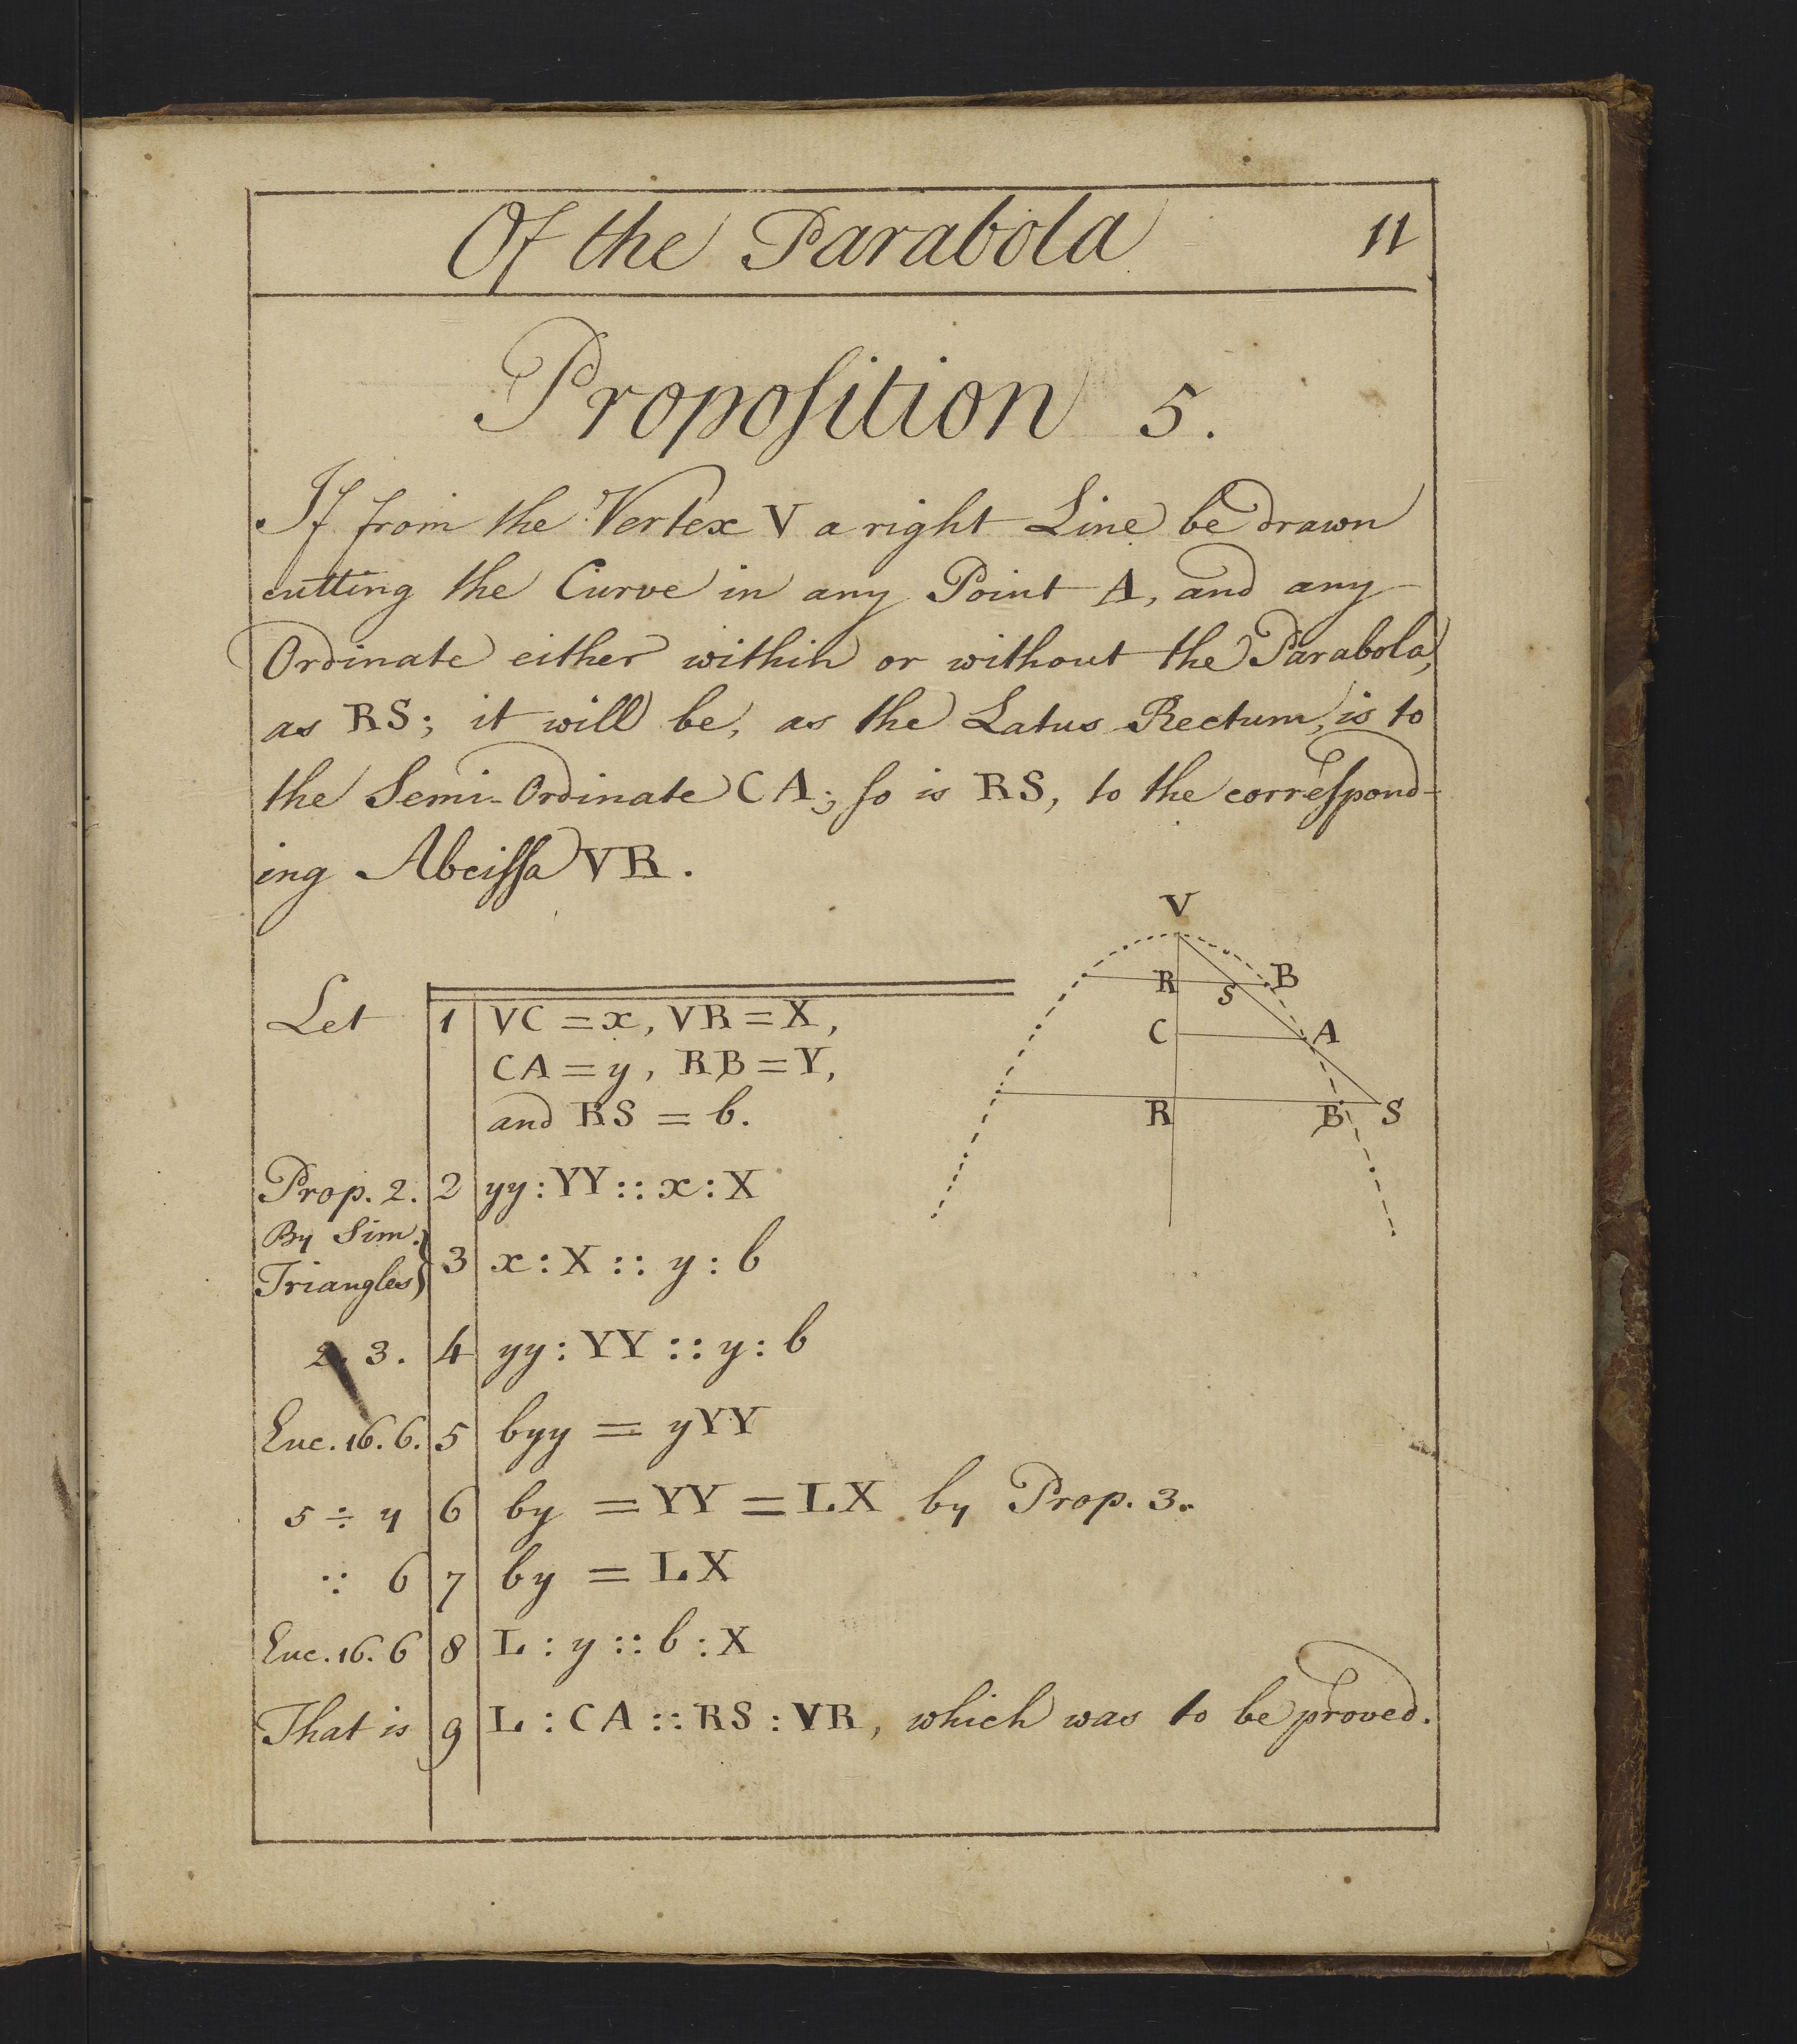 Of the Parabola 11
Propoſition 5.
If from the Vertex V a right Line be drawn
cutting the Curve in any Point A, and any
Ordinate either within or without the Parabola,
as RS; it will be, as the Latus Rectum, is to
the Semi-Ordinate CA; ſo is RS, to the correſpond-
ing Abciſſa VR.
V
R S B
C A
R B S
Let 1 VC = x, VR = X,
CA = y, RB = Y,
and RS = b.
Prop. 2. 2 yy : YY :: x : X
By Sim.
Triangles} 3 x : X :: y : b
2. 3. 4 yy : YY :: y : b
Euc. 16. 6. 5 byy = yYY
5 ÷ y 6 by = YY = LX by Prop. 3.
∵ 6 7 by = LX
Euc. 16. 6 8 L : y :: b : X
That is 9 L : CA :: RS : VR, which was to be proved.